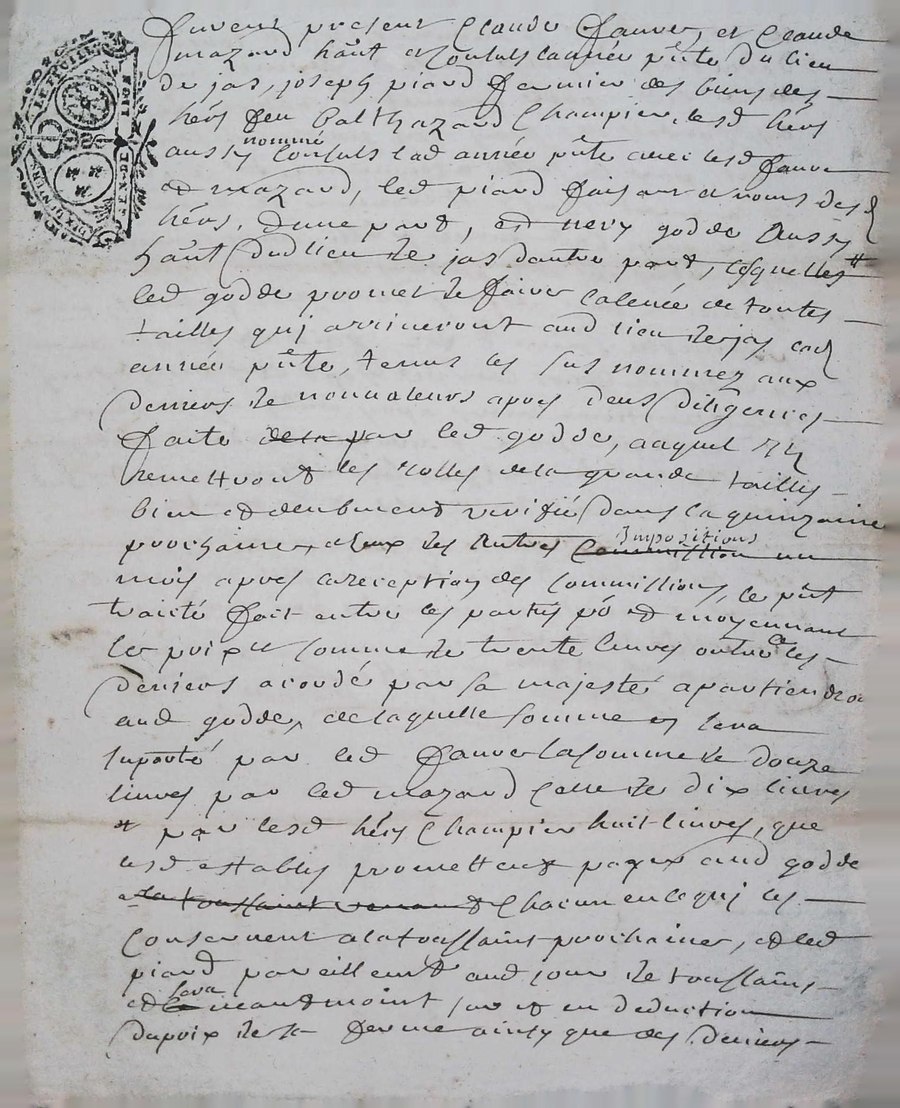 furent present Claude Fauvre, et Claude
mazard haût et Consuls lannée pñte du lieu
de jas, joseph piard fermier des biens des
hérs feu Balthazard Champier, lesd hérs
nommé
aussy Consuls lad année pñte avec lesd Fauvre
et mazard, led piard faisant a noms des d
hérs, dune part, et godde Aussy
haût dud lieu de jas dautre part, lesquelles
led godde promet de faire la levée de toutes
tailles qui arriveront aud lieu de jas lad
année pñte, tenus les sus nommez aux
deniers de apres deus diligences
faite de la par led godde, auquel ilz
remettront les rolles de la grande tailles
bien et deubment verifié dans la quinzaine
Impositions
prochaine, a ceux des Autres Commission un
mois apres la reception des Commissions, le pñt
traitté fait entre les parties moyennant
le prix et somme de trente livres outre ce les
deniers acordé par sa majesté apartiendra
aud godde, de laquelle somme en sera
suporté par led Fauvre la somme de douze
livres par led mazard Celle de dix livres
et par lesd hérs Champier huit livres, que
promettent payer aud godde
a la toussaint venant Chacun en ce qui les
Consernent a la toussains prochaine, et led
piard pareillement aud jour de toussains
sera
et le neantmoint en deduction
du prix de sa ferme ainsy que des deniers